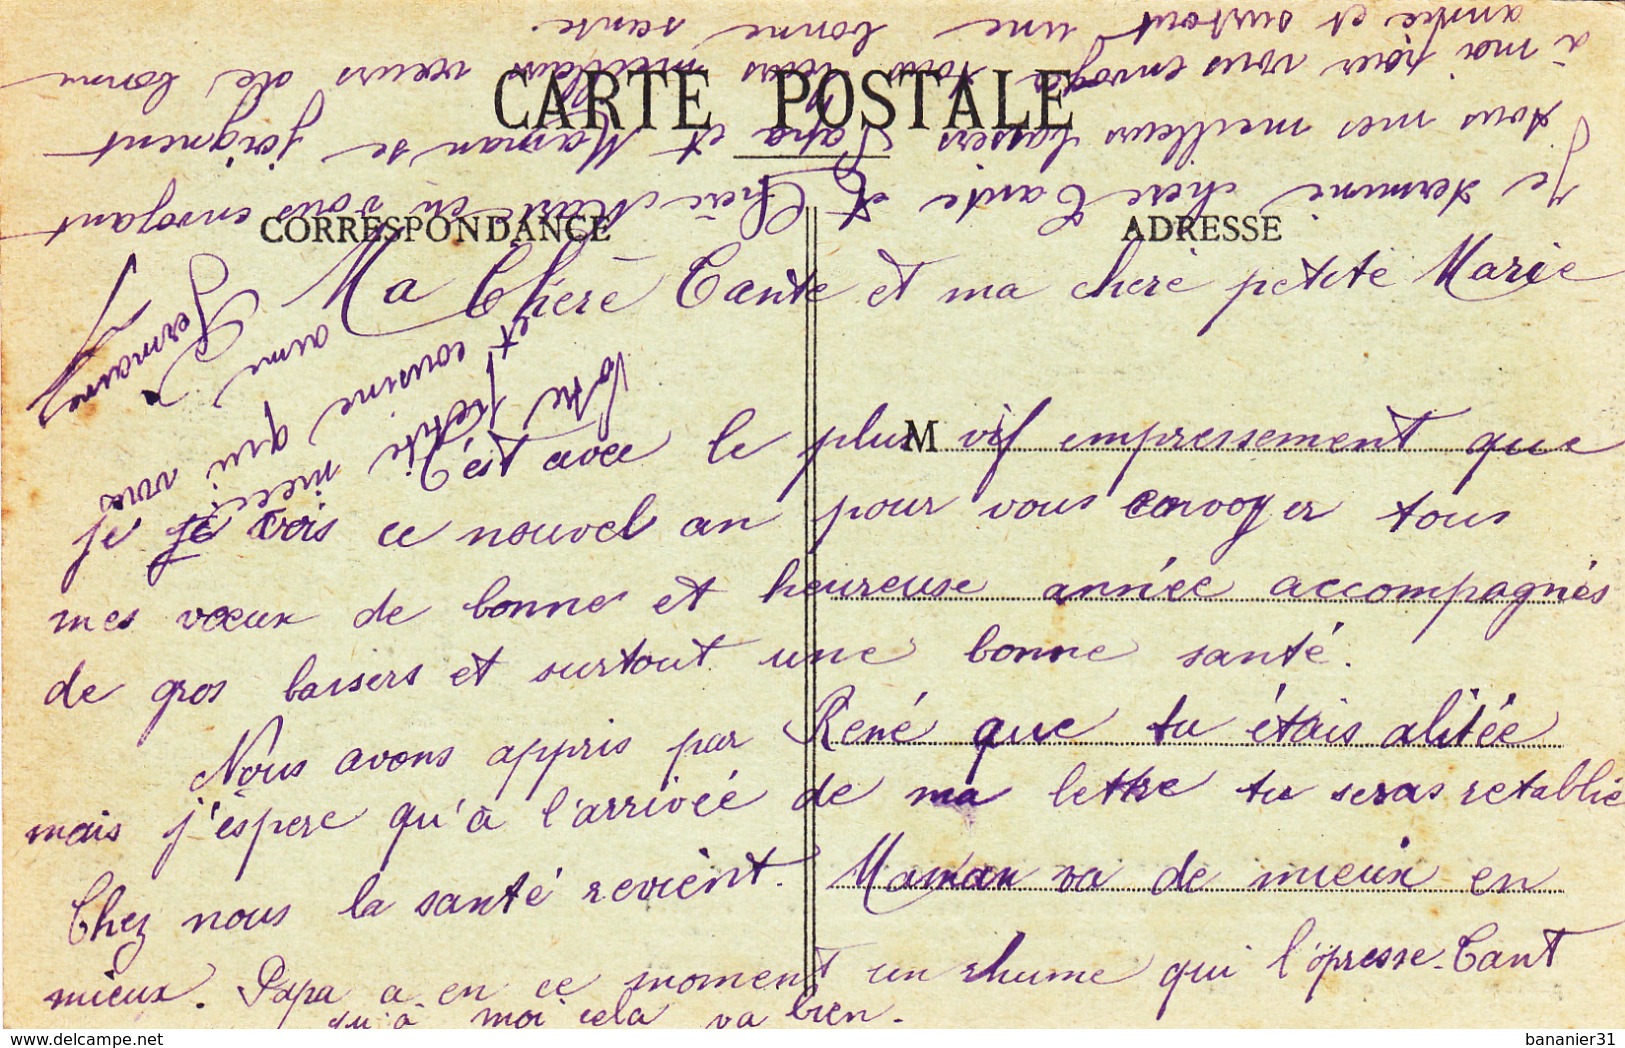 CARTE POSTALE
CORRESPONDANCE
ADRESSE
M
Ma Chère Tante et ma chère petite Marie
C'est avec le plus vif empressement que
je je vois ce nouvel an pour vous envoyer tous
mes vœux de bonne et heureuse année accompagnés
de gros baisers et surtout une bonne santé.
Nous avons appris par René que tu étais alitée
mais j'éspere qu'à l'arrivée de ma lettre tu seras retablie
Chez nous la santé revient. Maman va de mieux en
mieux. Papa a en ce moment un rhume qui l'opresse. Tant
qu'à moi cela va bien.
Je termine chère Tante et Chère Marie en vous envoyant
tous mes meilleurs baisers Papa et Maman se joignent
à moi pour vous envoyer tous leurs meilleurs vœurs de bonne
année et surtout une bonne santé.
Votre petite nièce
et cousine qui vous
aime
Germaine
delcampe.net
bananier31